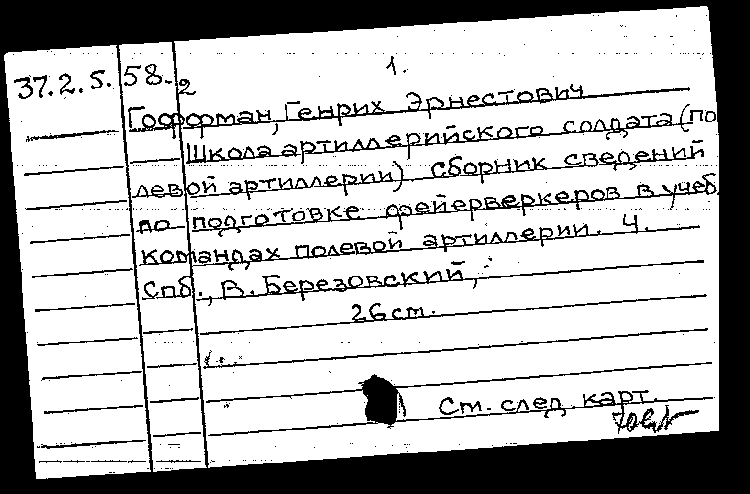 37.2.5.58-2
1.
Гофферман, Генрих Эрнестович
Школа артиллерийского солдата (по
левой артиллерии) сборник сведений
по подготовке фейерверкеров в учеб.
командах полевой артиллерии. Ч.
Спб., В. Березовский,
26 cm.
Cm. след. карт.